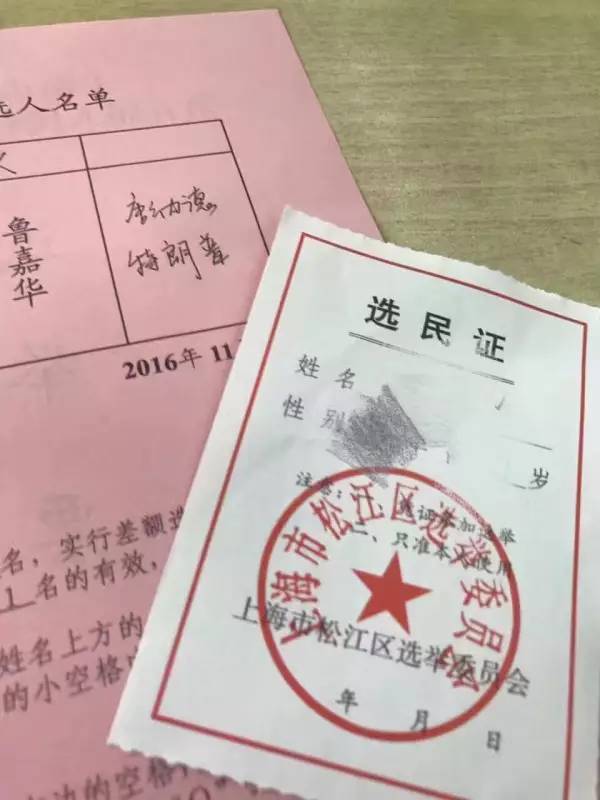 选人名单
鲁嘉华
唐纳德
特朗普
2016年 11
名，实行差额选
1 名的有效，
姓名上方的
的小空格
右边的空格
选民证
姓名
性别 岁
注意：一、凭证参加选举
二、只准本人使用
上海市松江区选举委员会
上海市松江区选举委员会
年 月 日